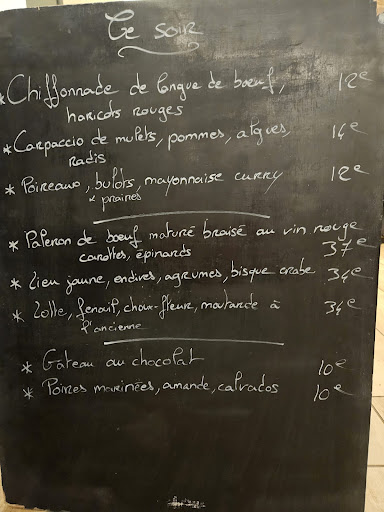 Ce soir
* Chiffonnade de langue de bœuf, 12€
haricots rouges
* Carpaccio de mulets, pommes, algues, 14€
radis
* Poireaux, bulots, mayonnaise curry 12€
& praires
* Paleron de bœuf maturé braisé au vin rouge
carottes, épinards 37€
* Lieu jaune, endives, agrumes, bisque crabe 34€
* Lotte, fenouil, choux-fleur, moutarde à 34€
l'ancienne
* Gâteau au chocolat 10€
* Poires marinées, amande, calvados 10€